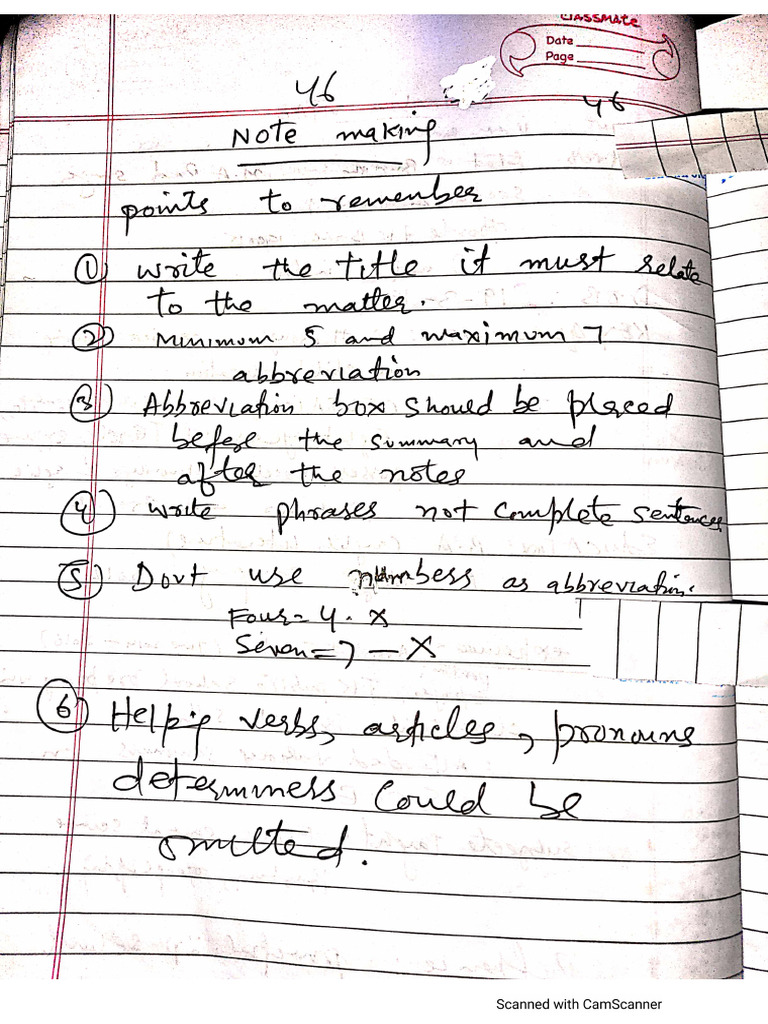 classmate
Date
Page
46
46
Note making
points to remember
① Write the title it must relate
to the matter.
② Minimum 5 and maximum 7
abbreviation
③ Abbreviation box should be placed
before the summary and
after the notes
④ write phrases not complete sentences
⑤ Dont use numbers as abbreviation.
Four = 4 . x
Seven = 7 — x
⑥ Helpig verbs, articles, pronouns
determiners could be
omitted.
Scanned with CamScanner